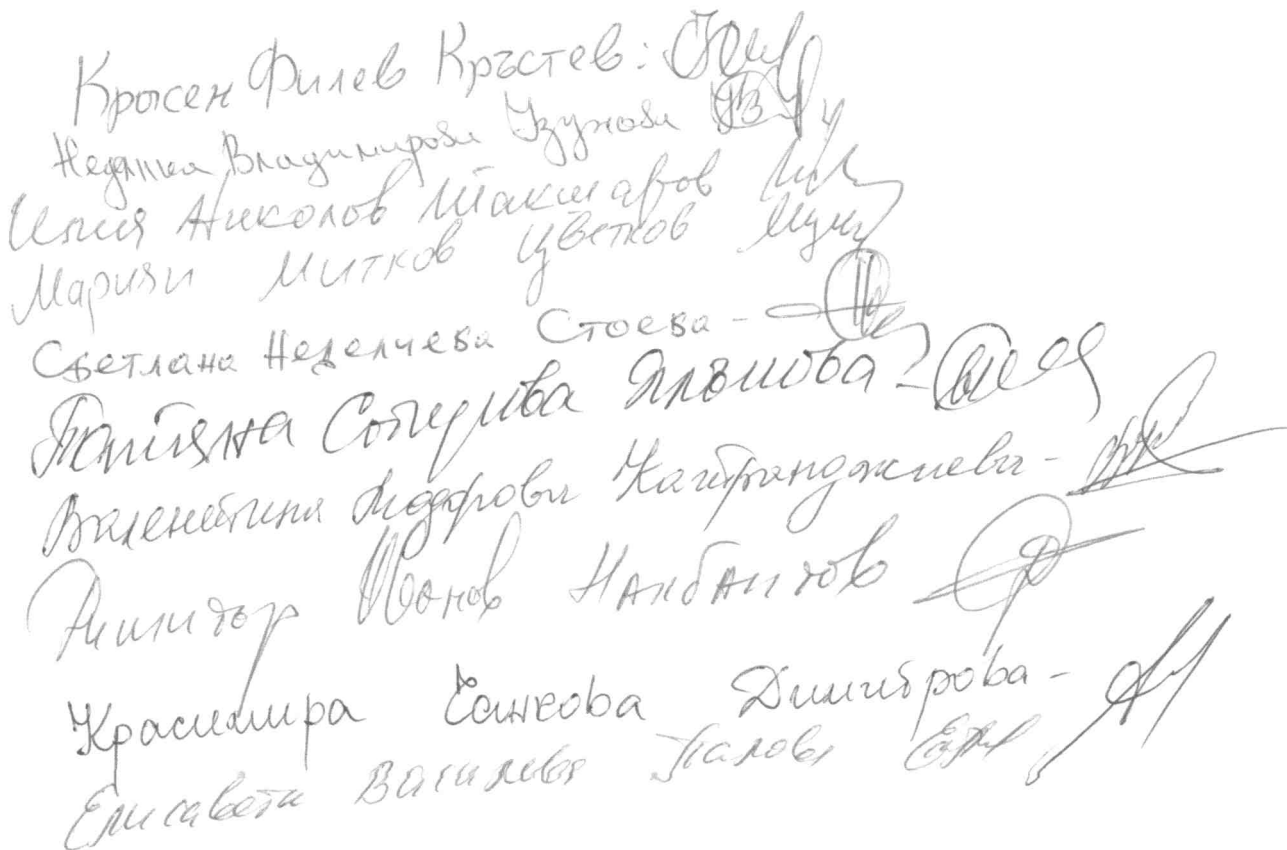 Красен Филев Кръстев:
Недялка Владимирова Узунова
Илия Николов Такмаров
Мариян Митков Цветков
Светлана Неделчева Стоева -
Татяна Сотирова Ялъмова -
Валентина Тодорова Кайтранджиева -
Димитър Иванов Налбантов
Красимира Санкова Димитрова -
Елисавета Василева Палова